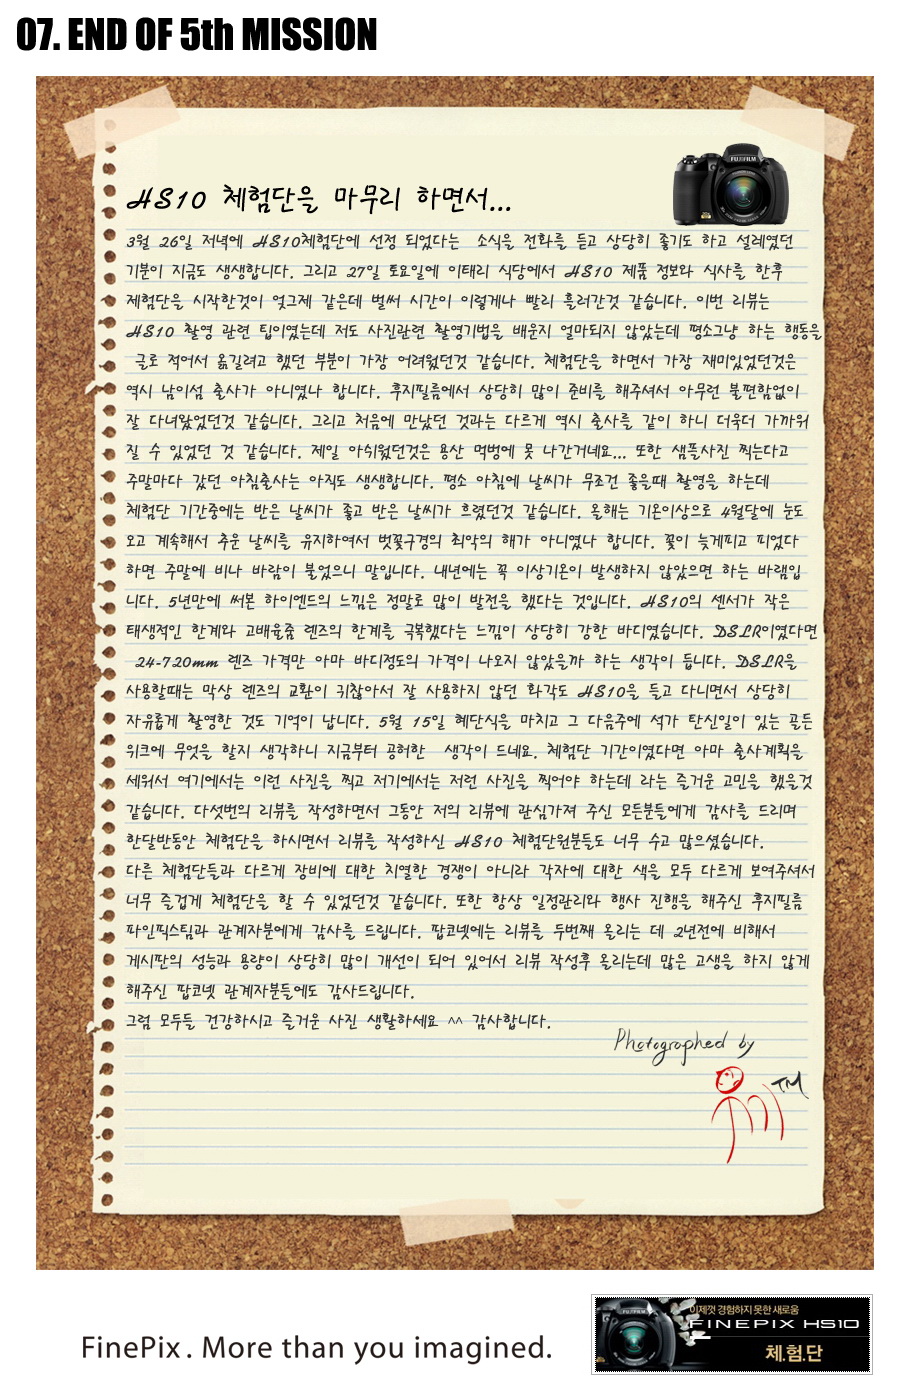 07. END OF 5th MISSION
FUJIFILM
HS10 체험단을 마무리 하면서...
3월 26일 저녁에 HS10체험단에 선정 되었다는 소식을 전화를 듣고 상당히 좋기도 하고 설레였던
기분이 지금도 생생합니다. 그리고 27일 토요일에 이태리 식당에서 HS10 제품 정보와 식사를 한후
체험단을 시작한것이 엊그제 같은데 벌써 시간이 이렇게나 빨리 흘러간것 같습니다. 이번 리뷰는
HS10 촬영 관련 팁이였는데 저도 사진관련 촬영기법을 배운지 얼마되지 않았는데 평소그냥 하는 행동을
글로 적어서 옮길려고 했던 부분이 가장 어려웠던것 같습니다. 체험단을 하면서 가장 재미있었던것은
역시 남이섬 출사가 아니였나 합니다. 후지필름에서 상당히 많이 준비를 해주셔서 아무런 불편함없이
잘 다녀왔었던것 같습니다. 그리고 처음에 만났던 것과는 다르게 역시 출사를 같이 하니 더욱더 가까워
질 수 있었던 것 같습니다. 제일 아쉬웠던것은 용산 먹벙에 못 나간거네요... 또한 샘플사진 찍는다고
주말마다 갔던 아침출사는 아직도 생생합니다. 평소 아침에 날씨가 무조건 좋을때 촬영을 하는데
체험단 기간중에는 반은 날씨가 좋고 반은 날씨가 흐렸던것 같습니다. 올해는 기온이상으로 4월달에 눈도
오고 계속해서 추운 날씨를 유지하여서 벚꽃구경의 최악의 해가 아니였나 합니다. 꽃이 늦게피고 피었다
하면 주말에 비나 바람이 불었으니 말입니다. 내년에는 꼭 이상기온이 발생하지 않았으면 하는 바램입
니다. 5년만에 써본 하이엔드의 느낌은 정말로 많이 발전을 했다는 것입니다. HS10의 센서가 작은
태생적인 한계와 고배율줌 렌즈의 한계를 극복했다는 느낌이 상당히 강한 바디였습니다. DSLR이였다면
24-720mm 렌즈 가격만 아마 바디정도의 가격이 나오지 않았을까 하는 생각이 듭니다. DSLR을
사용할때는 막상 렌즈의 교환이 귀찮아서 잘 사용하지 않던 화각도 HS10을 들고 다니면서 상당히
자유롭게 촬영한 것도 기억이 납니다. 5월 15일 해단식을 마치고 그 다음주에 석가 탄신일이 있는 골든
위크에 무엇을 할지 생각하니 지금부터 공허한 생각이 드네요. 체험단 기간이였다면 아마 출사계획을
세워서 여기에서는 이런 사진을 찍고 저기에서는 저런 사진을 찍어야 하는데 라는 즐거운 고민을 했을것
같습니다. 다섯번의 리뷰를 작성하면서 그동안 저의 리뷰에 관심가져 주신 모든분들에게 감사를 드리며
한달반동안 체험단을 하시면서 리뷰를 작성하신 HS10 체험단원분들도 너무 수고 많으셨습니다.
다른 체험단들과 다르게 장비에 대한 치열한 경쟁이 아니라 각자에 대한 색을 모두 다르게 보여주셔서
너무 즐겁게 체험단을 할 수 있었던것 같습니다. 또한 항상 일정관리와 행사 진행을 해주신 후지필름
파인픽스팀과 관계자분에게 감사를 드립니다. 팝코넷에는 리뷰를 두번째 올리는 데 2년전에 비해서
게시판의 성능과 용량이 상당히 많이 개선이 되어 있어서 리뷰 작성후 올리는데 많은 고생을 하지 않게
해주신 팝코넷 관계자분들에도 감사드립니다.
그럼 모두들 건강하시고 즐거운 사진 생활하세요 ^^ 감사합니다.
Photographed by
TM
FinePix. More than you imagined.
이제껏 경험하지 못한 새로움
FINEPIX HS10
체.험.단